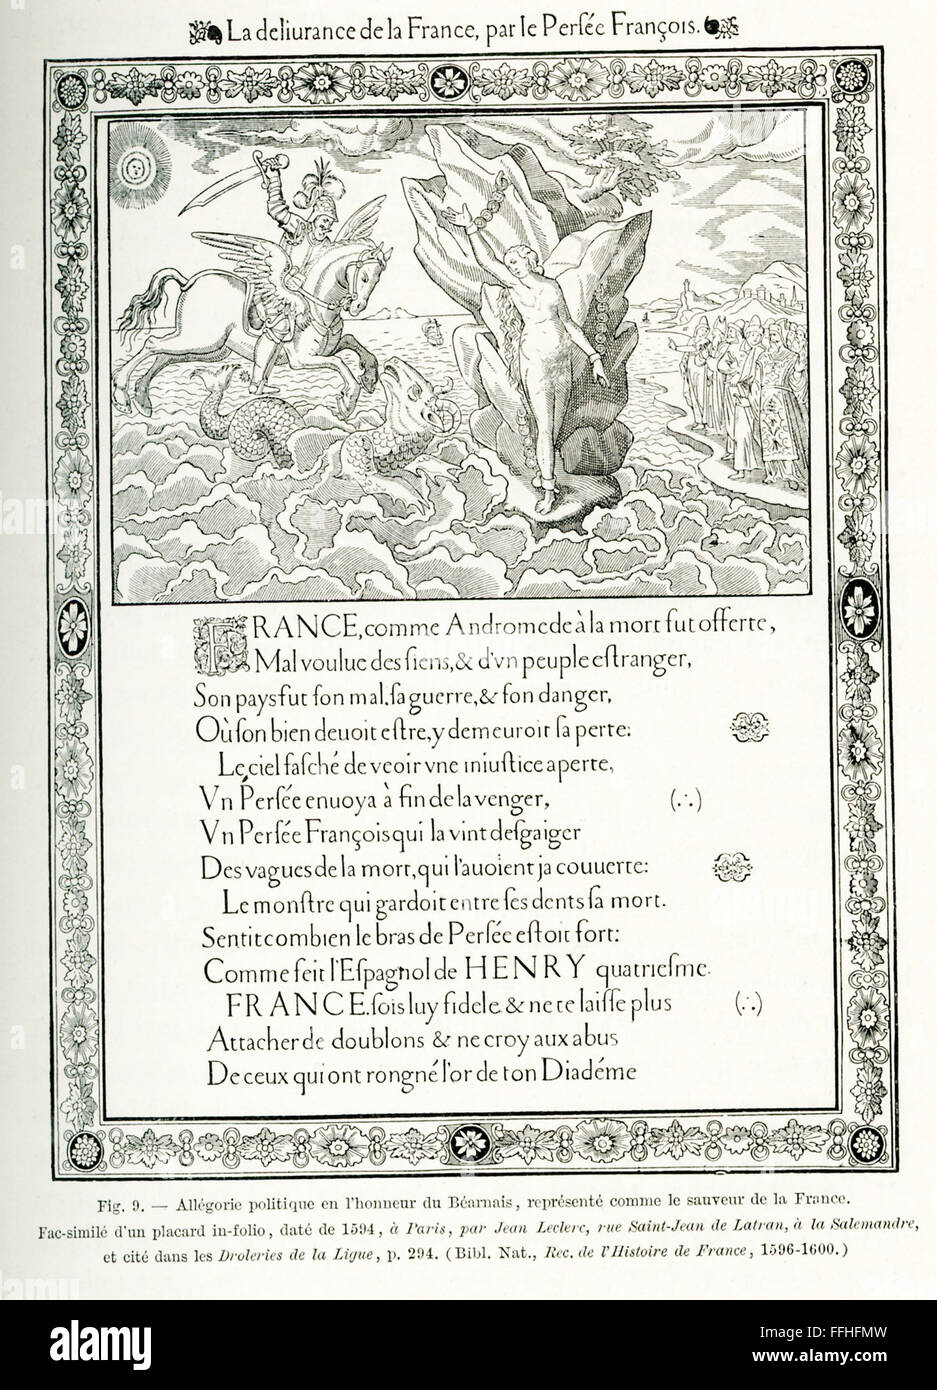 La deliurance de la France, par le Perſée François.
FRANCE, comme Andromede à la mort fut offerte,
Mal voulue des ſiens, & d'vn peuple eſtranger,
Son pays fut ſon mal, ſa guerre, & ſon danger,
Où ſon bien deuoit eſtre, y demeuroit ſa perte:
Le ciel faſché de veoir vne iniuſtice aperte,
Vn Perſée enuoya à fin de la venger, (∴)
Vn Perſée François qui la vint deſgaiger
Des vagues de la mort, qui l'auoient ja couuerte:
Le monſtre qui gardoit entre ſes dents ſa mort.
Sentit combien le bras de Perſée eſtoit fort:
Comme feit l'Eſpagnol de HENRY quatrieſme.
FRANCE, ſois luy fidele & ne te laiſſe plus (∴)
Attacher de doublons & ne croy aux abus
De ceux qui ont rongné l'or de ton Diadéme
Fig. 9. — Allégorie politique en l'honneur du Béarnais, représenté comme le sauveur de la France.
Fac-similé d'un placard in-folio, daté de 1594, à Paris, par Jean Leclerc, rue Saint-Jean de Latran, à la Salemandre,
et cité dans les Droleries de la Ligue, p. 294. (Bibl. Nat., Rec. de l'Histoire de France, 1596-1600.)
alamy
Image ID: FFHFMW
www.alamy.com